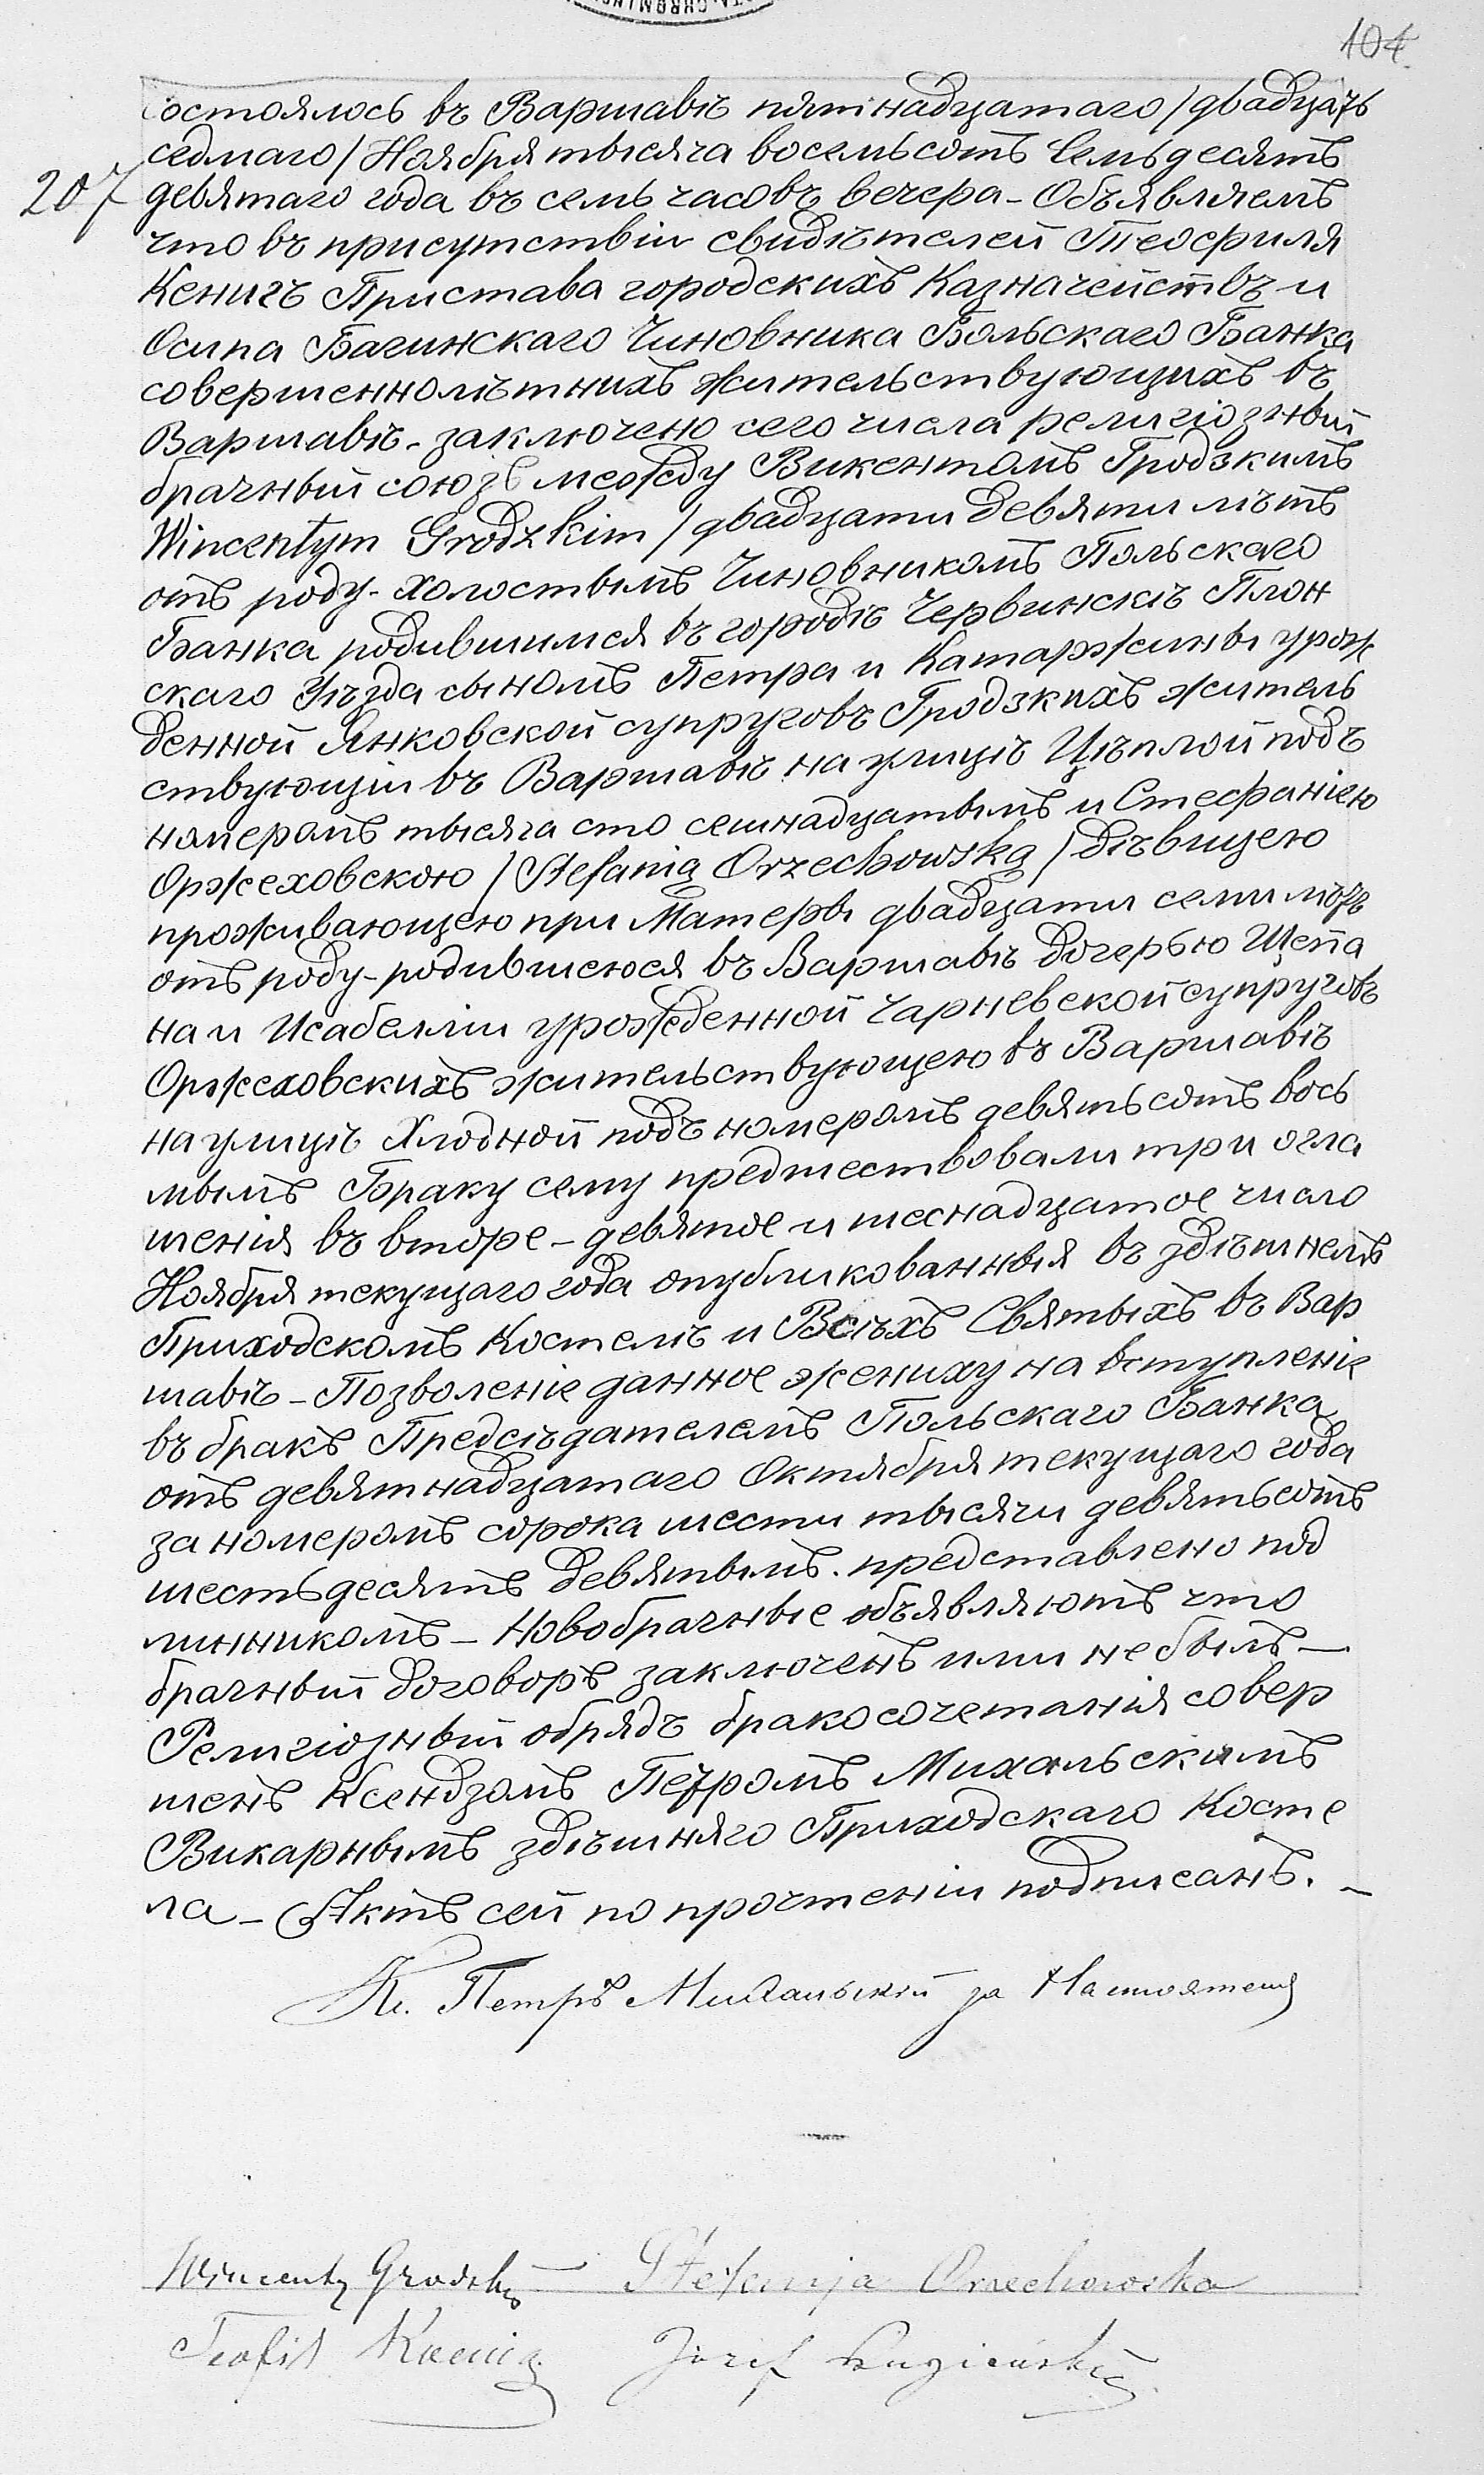 104
Состоялось въ Варшавѣ пятнадцатаго /двадцать
седмаго/ Ноября тысяча восемьсотъ семьдесятъ
207 девятаго года въ семь часовъ вечера - Объявляемъ
что въ присутствіи свидѣтелей Теофиля
Кенигъ Пристава городскихъ Казначействъ и
Осипа Багинскаго Чиновника Больскаго Банка
совершеннолѣтнихъ жительствующихъ въ
Варшавѣ - заключено сего числа религіозный
брачный союзъ между Викентомъ Гродзкимъ
Wincentym Grodzkim / двадцати девяти лѣтъ
отъ роду - холостымъ Чиновникомъ Польскаго
Банка родившимся въ городѣ Червинскѣ Плон
скаго Уѣзда сыномъ Петра и Катаржины урож
денной Янковской супруговъ Гродзкихъ житель
ствующій въ Варшавѣ на улицѣ Цѣплой подъ
номеромъ тысяча сто семнадцатымъ и Стефаніею
Оржеховскою / Stefanią Orzechowską / дѣвицею
проживающею при Матеры двадцати семи лѣтъ
отъ роду - родившеюся въ Варшавѣ дочерью Щепа
на и Исабелліи урожденной Чарневской супруговъ
Оржеховскихъ жительствующею въ Варшавѣ
на улицѣ Хлодной подъ номеромъ девятьсотъ вось
мымъ Браку сему предшествовали три огла
шенія въ второе - девятое и шеснадцатое число
Ноября текущаго года опубликованныя въ здѣшнемъ
Приходскомъ Костелѣ и Всѣхъ Святыхъ въ Вар
шавѣ - Позволеніе данное жениху на вступленіе
въ бракъ Предсѣдателемъ Польскаго Банка
отъ девятнадцатаго Октября текущаго года
за номеромъ сорока шести тысячи девятьсотъ
шестьдесятъ девятымъ. представлено под
линникомъ - Новобрачные объявляютъ что
брачный договоръ заключенъ ими не былъ -
Религіозный обрядъ бракосочетанія совер
шенъ Ксендзомъ Петромъ Михальскимъ
Викарнымъ здѣшняго Приходскаго Косте
ла - Актъ сей по прочтеніи подписанъ. -
Кс. Петръ Михальскій за Настоятеля
Wincenty Grodzki Stefanija Orzechowska
Teofil Koenig Józef